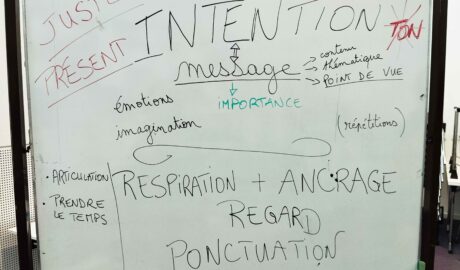 JUSTE
INTENTION
TON
PRÉSENT
message
contenu
thématique
POINT DE VUE
émotions
IMPORTANCE
imagination
(répétitions)
• ARTICULATION
• PRENDRE
LE TEMPS
RESPIRATION + ANCRAGE
REGARD
PONCTUATION